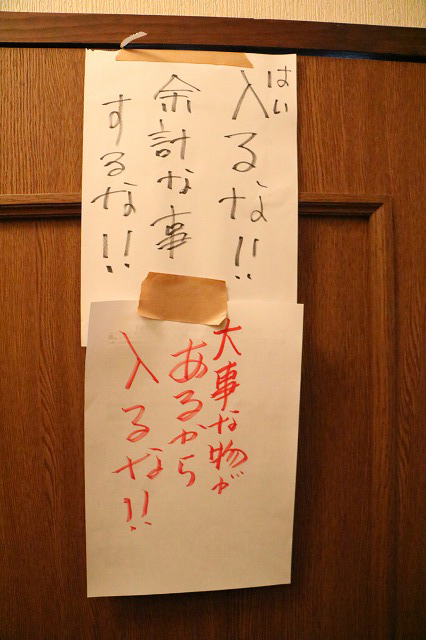 はい
入るな!!
余計な事
するな!!
大事な物が
あるから
入るな!!